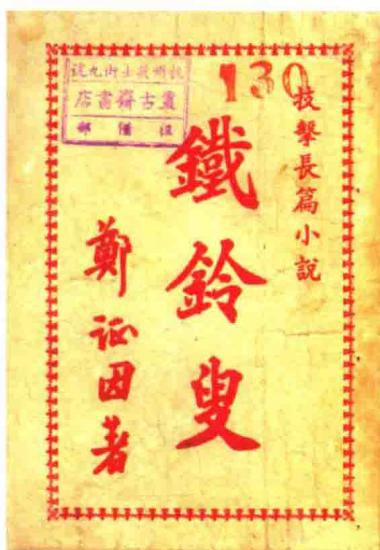 130
技擊長篇小說
鐵鈴叟
鄭証因著
古齋書店